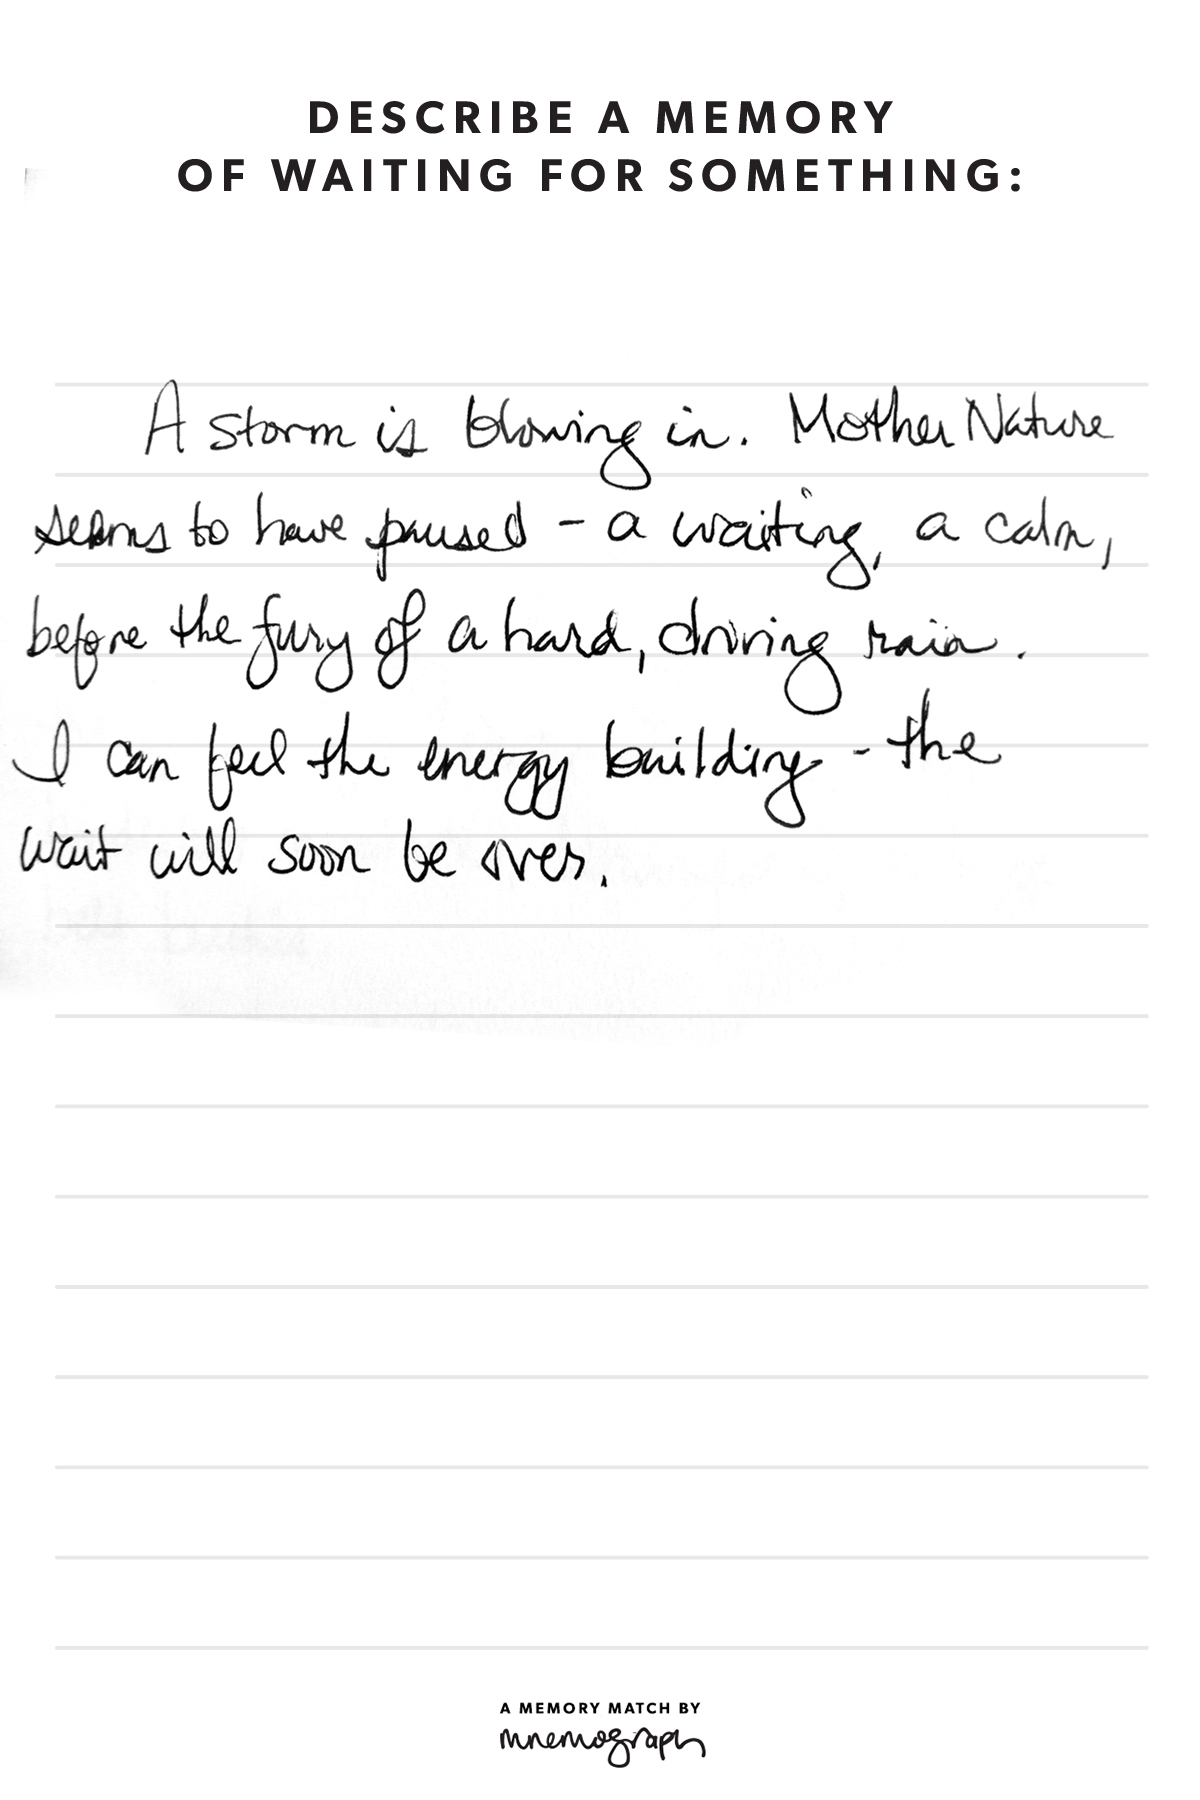 DESCRIBE A MEMORY
OF WAITING FOR SOMETHING:
A storm is blowing in. Mother Nature
seems to have paused - a waiting, a calm,
before the fury of a hard, driving rain.
I can feel the energy building - the
wait will soon be over.
A MEMORY MATCH BY
mnemograph